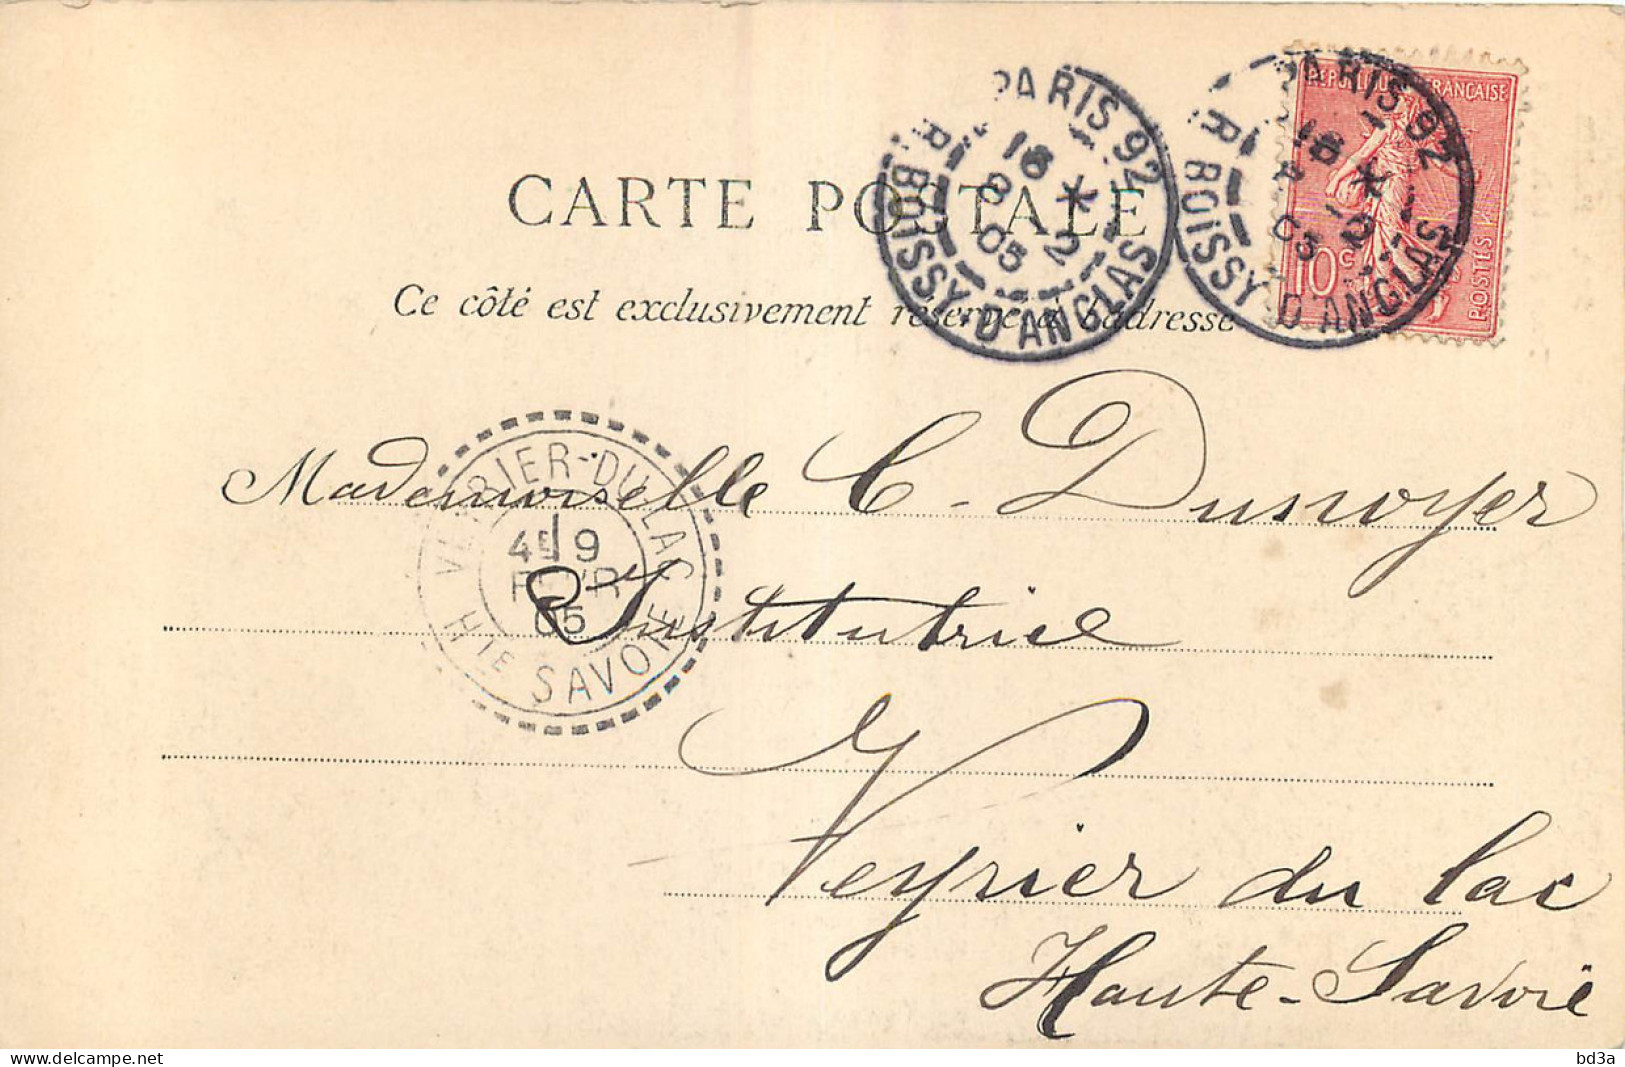 CARTE POSTALE
Ce côté est exclusivement réservé à l'adresse
PARIS 92
R. BOISSY-D'ANGLAS
18 *
8 2
05
PARIS 92
R. BOISSY D'ANGLAS
REPUBLIQUE FRANÇAISE
10 c
POSTES
Mademoiselle C. Dunoyer
Institutrice
Veyrier du lac
Haute-Savoie
VEYRIER-DU-LAC
4E 9
FEVR
05
HTE SAVOIE
www.delcampe.net
bd3a